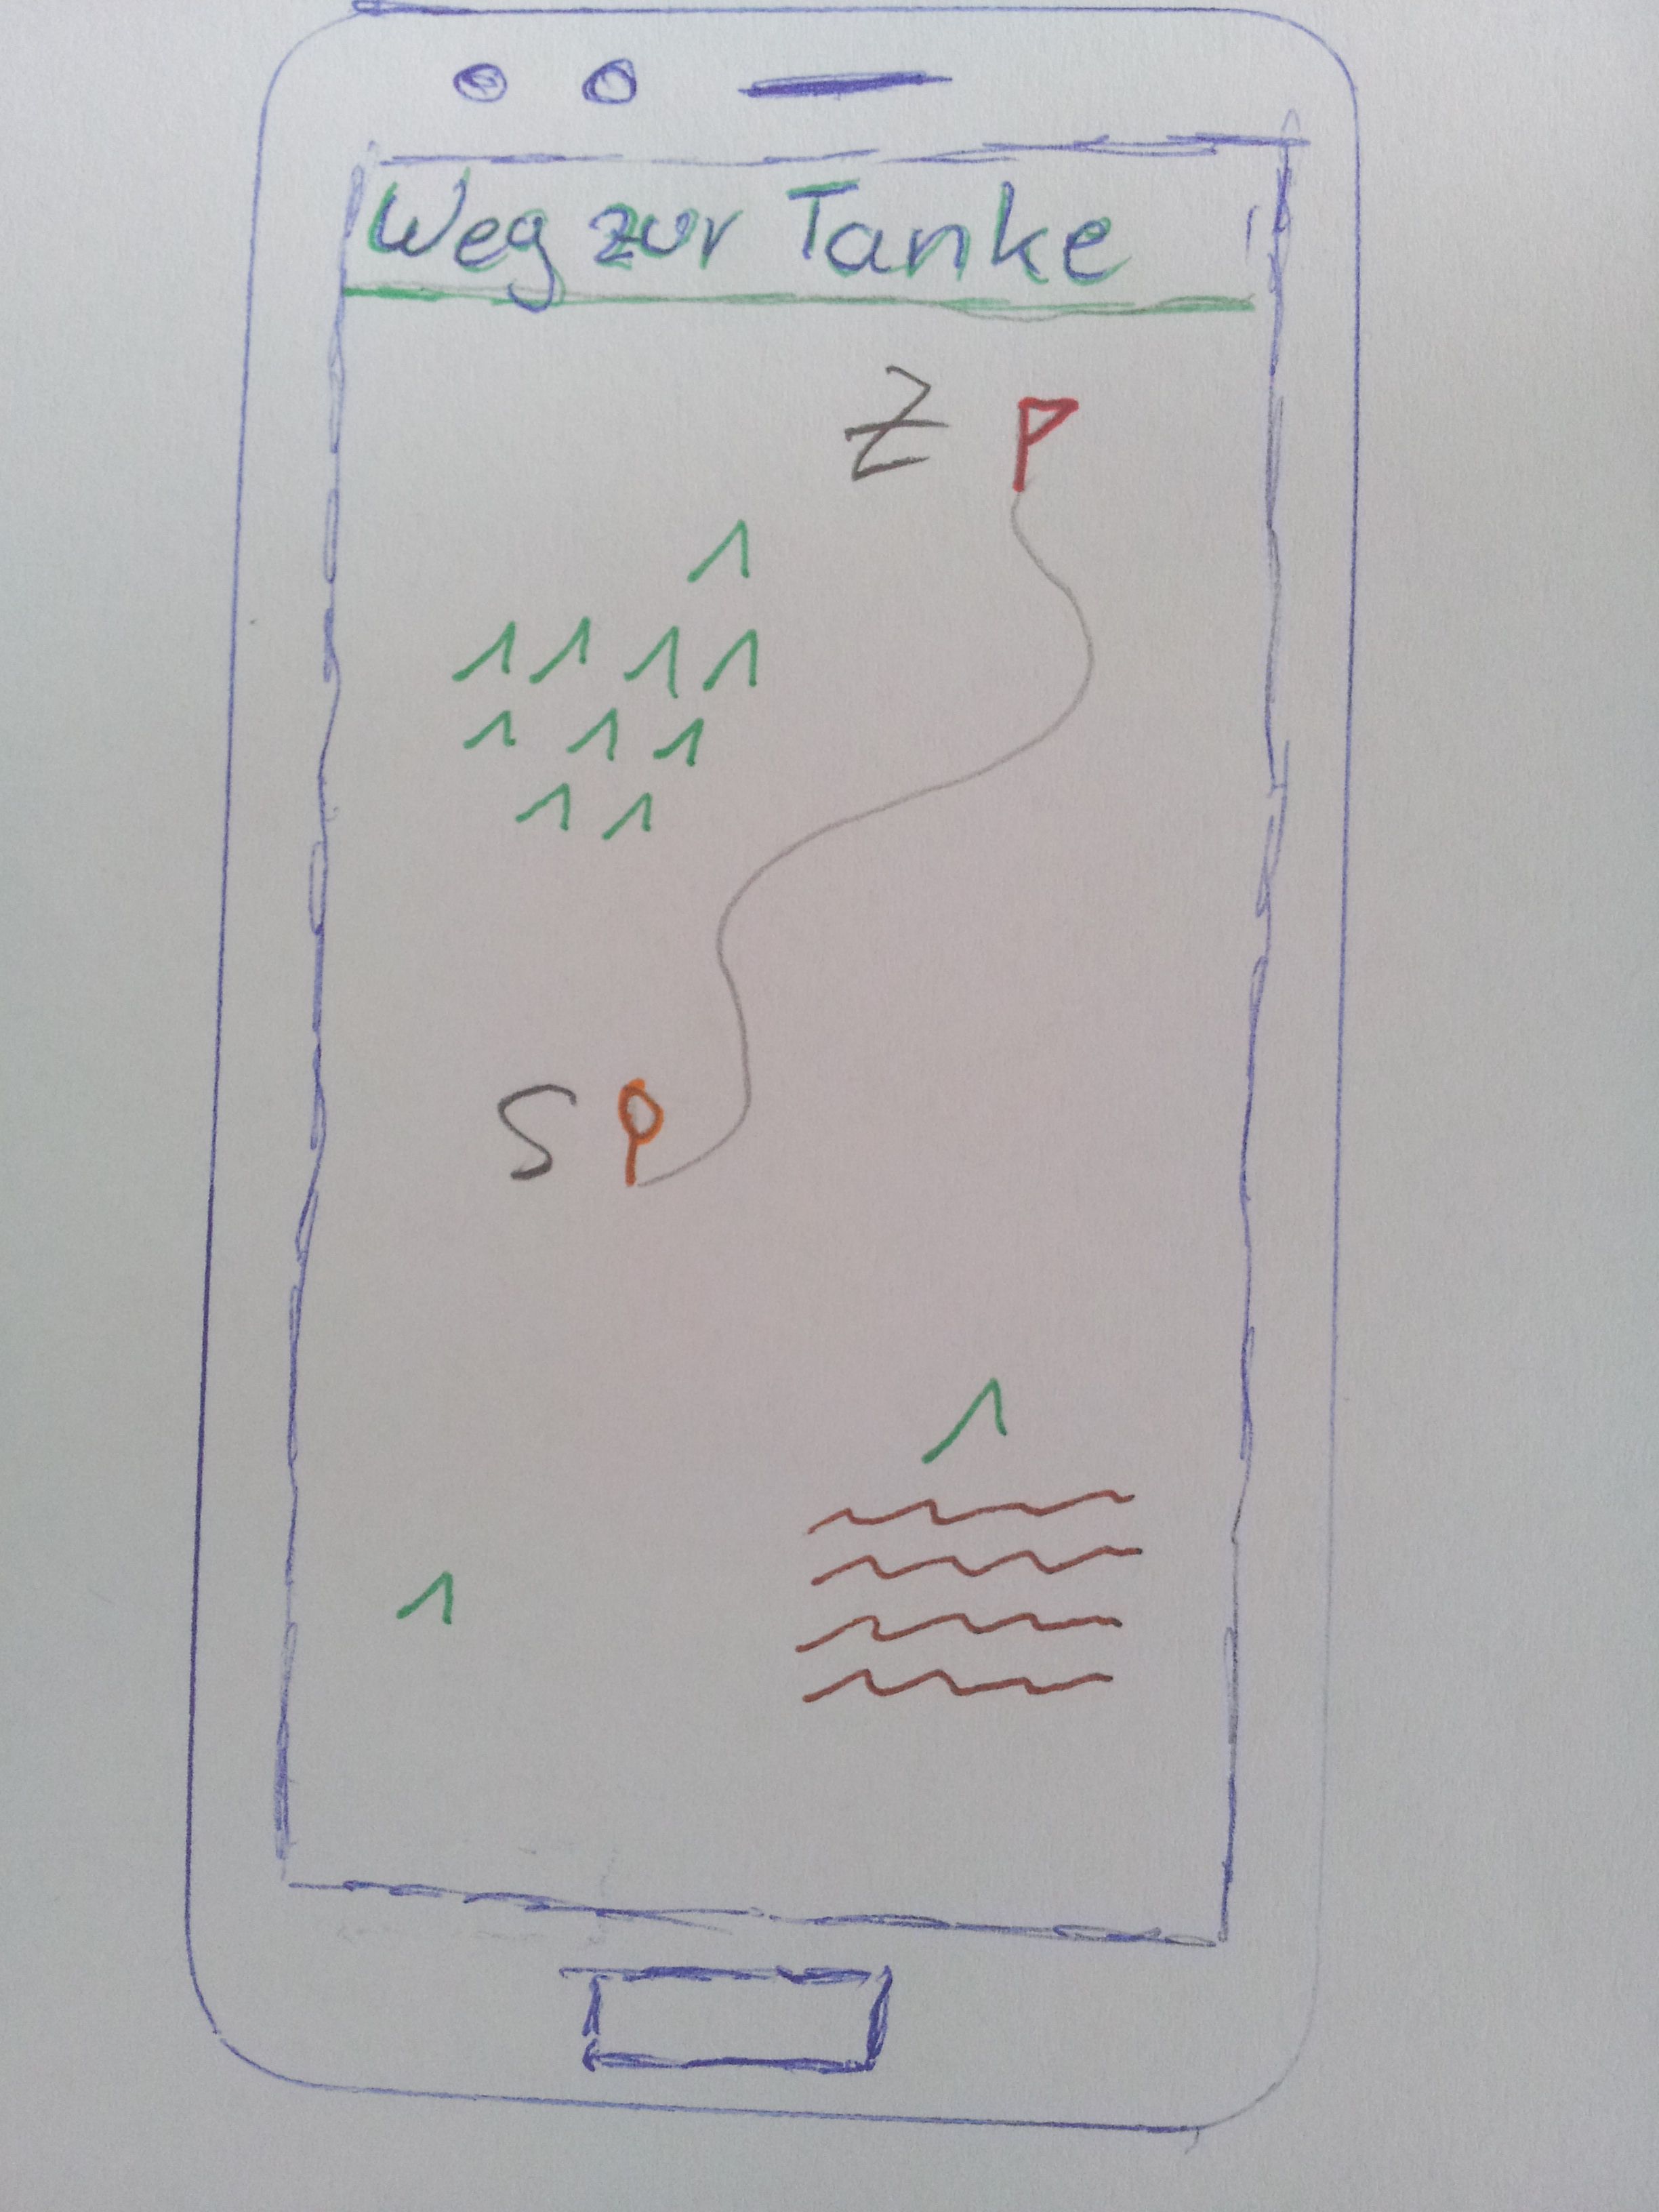 Weg zur Tanke
Z
S